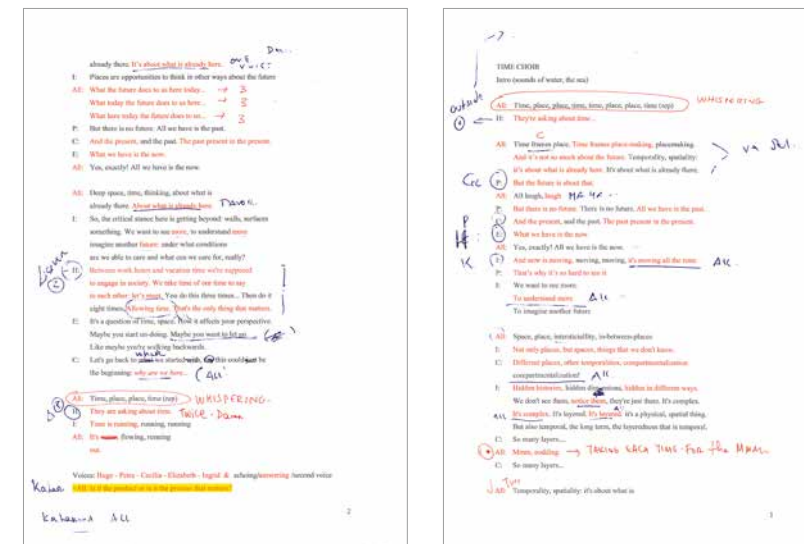 already there. It's about what is already here. ONE VOICE
E: Places are opportunities to think in other ways about the future
All: What the future does to us here today... → 3
What today the future does to us here... → 3
What here today the future does to us... → 3
P: But there is no future. All we have is the past.
C: And the present, and the past. The past present in the present.
E: What we have is the now.
All: Yes, exactly! All we have is the now.
All: Deep space, time, thinking, about what is
already there. About what is already here.
I: So, the critical stance here is getting beyond: walls, surfaces
something. We want to see more, to understand more
imagine another future: under what conditions
are we able to care and what can we care for, really?
H: Between work hours and vacation time we're supposed
to engage in society. We take time of our time to say
to each other: let's meet. You do this three times... Then do it
eight times. Allowing time. That's the only thing that matters.
E: It's a question of time, space. How it affects your perspective.
Maybe you start un-doing. Maybe you want to let go.
Like maybe you're walking backwards.
C: Let's go back to we started with, this could just be
the beginning: why are we here... (ALL)
All: Time, place, place, time (rep) WHISPERING
H: They are asking about time. TWICE
I: Time is running, running, running
All: It's flowing, running
out.
Voices: Hugo - Petra - Cecilia - Elizabeth - Ingrid & echoing/answering /second voice
+All: Is it the product or is it the process that matters?
Katarina ALL
2
TIME CHOIR
Intro (sounds of water, the sea)
outside
All: Time, place, place, time, time, place, place, time (rep) WHISPERING
H: They're asking about time...
C
All: Time frames place. Time frames place-making, placemaking.
And it's not so much about the future. Temporality, spatiality:
it's about what is already here. It's about what is already there.
P: But the future is about that.
All: All laugh, laugh
P: But there is no future. There is no future. All we have is the past.
C: And the present, and the past. The past present in the present.
E: What we have is the now
All: Yes, exactly! All we have is the now.
K And now is moving, moving, moving, it's moving all the time. ALL
P: That's why it's so hard to see it
E: We want to see more.
To understand more ALL
To imagine another future
All: Space, place, intersticiality, in-between-places
I: Not only places, but spaces, things that we don't know.
C: Different places, other temporalities, compartmentalization
compartmentalization! ALL
E: Hidden between, hidden dimensions, hidden in different ways.
We don't see them, notice them, they're just there. It's complex.
ALL It's complex. It's layered. It's layered: it's a physical, spatial thing.
But also temporal, the long term, the layeredness that is temporal.
C: So many layers...
All: Mmm, nodding → TAKING EACH TIME FOR the MMM
C: So many layers...
All: Temporality, spatiality: it's about what is
1